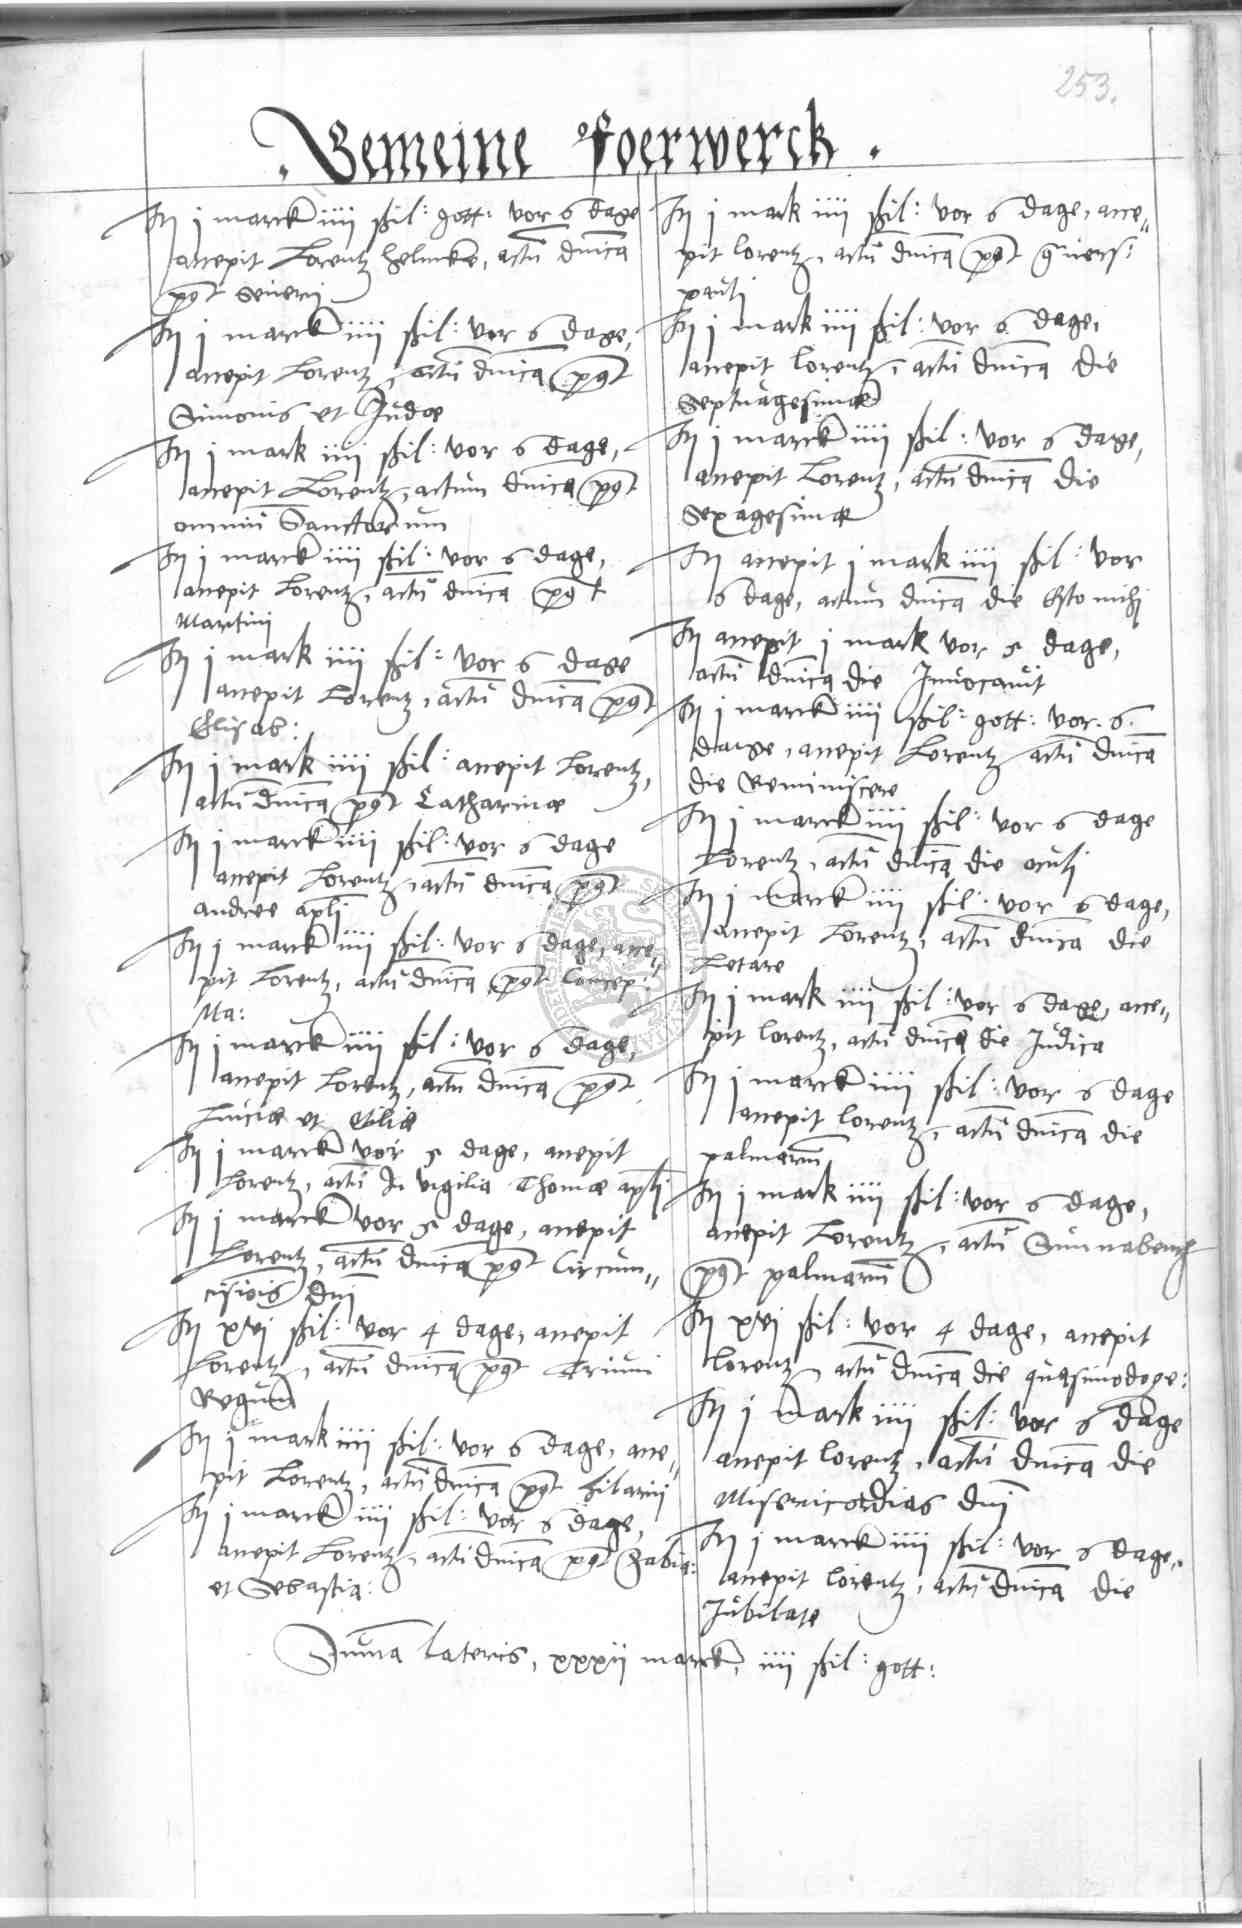 253.
. Gemeine Foerwerck .
It j marck iiij ßil: gott: vor 6 dage
accepit Lorentz Helmcke, actū dnīca
post Severi
It j marck iiij ßil: vor 6 dage,
accepit Lorentz, actū dnīca post
Simonis et Judæ
It j mark iiij ßil: vor 6 dage,
accepit Lorentz, actum dnīca post
omniū Sanctorum
It j marck iiij ßil: vor 6 dage,
accepit Lorentz, actū dnīca post
Martini
It j mark iiij ßil: vor 6 dage
accepit Lorentz, actū dnīca post
Elisab:
It j mark iiij ßil: accepit Lorentz,
actū dnīca post Catharinæ
It j marck iiij ßil: vor 6 dage
accepit Lorentz, actū dnīca post
andree apli
It j marck iiij ßil: vor 6 dage, acce-
pit Lorentz, actū dnīca post Concep:
Ma:
It j marck iiij ßil: vor 6 dage,
accepit Lorentz, actū dnīca post
Luciæ et Otiliæ
It j marck vor 5 dage, accepit
Lorentz, actū In vigilia Thomæ apli
It j marck vor 5 dage, accepit
Lorentz, actū dnīca post Circum-
cisiois dnī
It xvj ßil: vor 4 dage, accepit
Lorentz, actū dnīca post Trium
Regum
It j mark iiij ßil: vor 6 dage, acce-
pit Lorentz, actū dnīca post Hilarii
It j marck iiij ßil: vor 6 dage,
accepit Lorentz, actū dnīca post Fabia:
et Sebastia:
It j mark iiij ßil: vor 6 dage, acce-
pit Lorentz, actū dnīca post Cōvers:
pauli
It j mark iiij ßil: vor 6 dage,
accepit Lorentz, actū dnīca die
Septuagesimæ
It j marck iiij ßil: vor 6 dage,
accepit Lorentz, actū dnīca die
Sexagesimæ
It accepit j mark iiij ßil: vor
6 dage, actum dnīca die Esto mihj
It accepit j mark vor 5 dage,
actū dnīca die Invocavit
It j marck iiij ßil: gott: vor 6
dage, accepit Lorentz actū dnīca
die Reminiscere
It j marck iiij ßil: vor 6 dage
Lorentz, actū dnīca die oculi
It j marck iiij ßil: vor 6 dage,
accepit Lorentz, actū dnīca die
Letare
It j mark iiij ßil: vor 6 dage, acce-
pit Lorentz, actū dnīca die Judica
It j marck iiij ßil: vor 6 dage
accepit Lorentz, actū dnīca die
palmarū
It j mark iiij ßil: vor 6 dage,
accepit Lorentz, actū Sunnabends
post palmarū
It xvj ßil: vor 4 dage, accepit
Lorentz, actū dnīca die quasimodoge:
It j mark iiij ßil: vor 6 dage
accepit Lorentz, actū dnīca die
Misericordias dnī
It j marck iiij ßil: vor 6 dage,
accepit Lorentz, actū dnīca die
Jubilate
Suma lateris, xxxij marck, iiij ßil: gott: